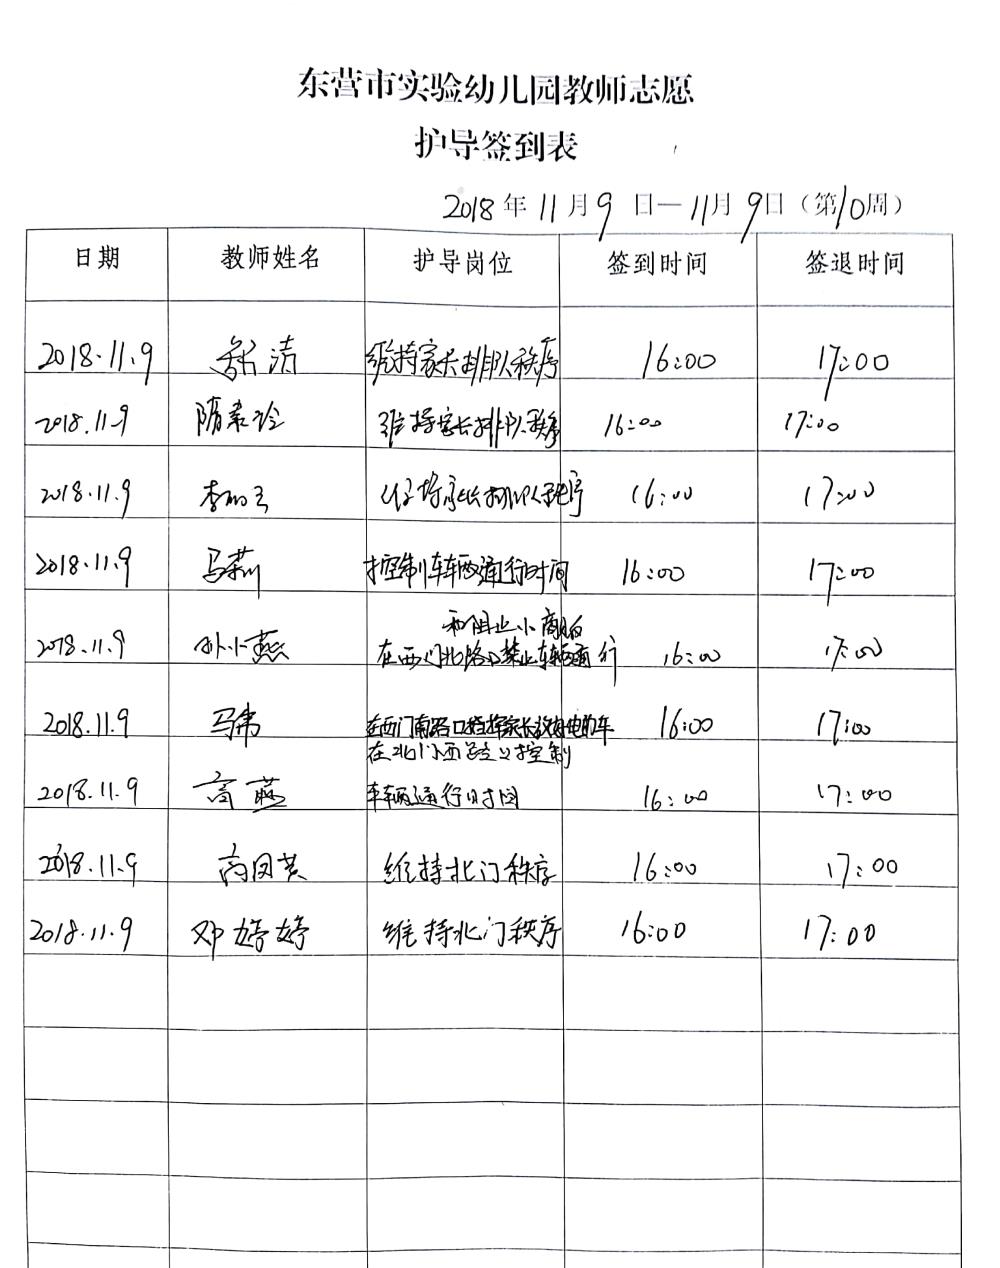 东营市实验幼儿园教师志愿
护导签到表
2018年11月9日—11月9日（第10周）
日期 教师姓名 护导岗位 签到时间 签退时间
2018.11.9 清 维持家长排队秩序 16:00 17:00
2018.11.9 隋素玲 维持家长排队秩序 16:00 17:00
2018.11.9 李 维持家长排队秩序 16:00 17:00
2018.11.9 马莉 控制车辆通行时间 16:00 17:00
和阻止小商贩
2018.11.9 孙小燕 在西门北路口禁止车辆通行 16:00 17:00
2018.11.9 马伟 在西门南路口指挥家长放好电动车 16:00 17:00
在北门西 控制
2018.11.9 高燕 车辆通行时间 16:00 17:00
2018.11.9 高图英 维持北门秩序 16:00 17:00
2018.11.9 邓婷婷 维持北门秩序 16:00 17:00